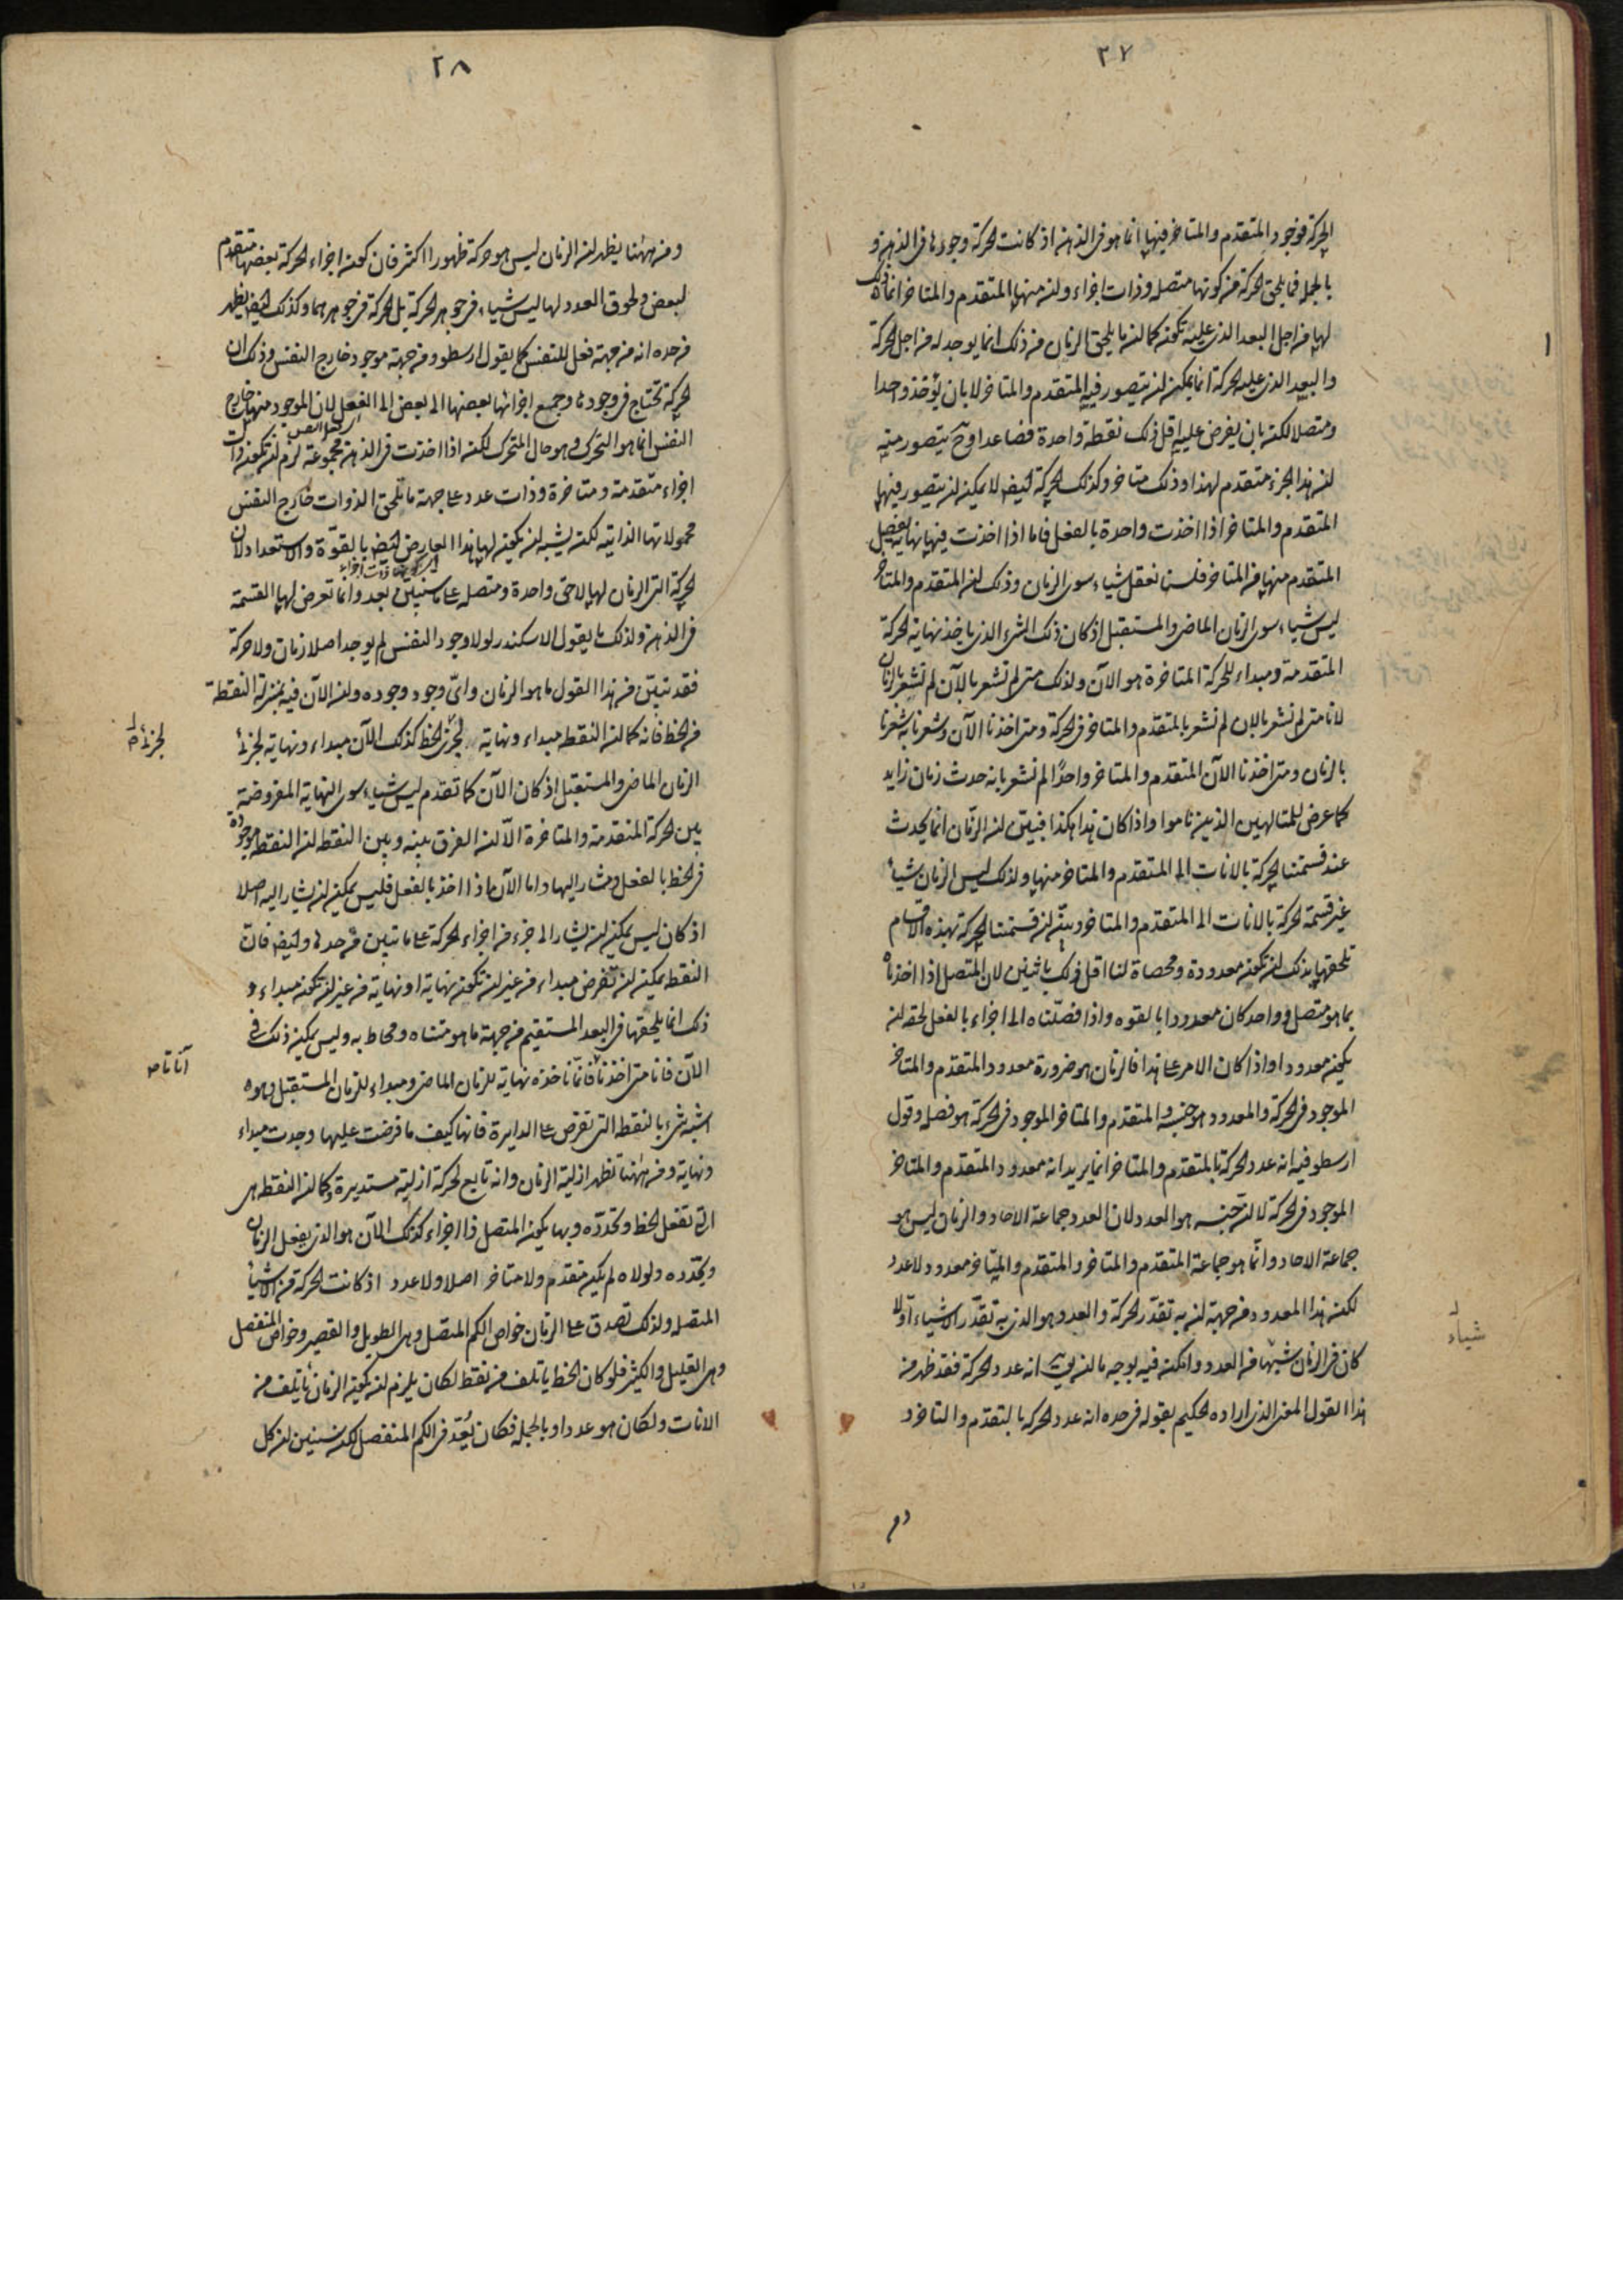 ٢٧
الحركة فوجود المتقدم والمتاخر فيها انما هو فى الذهن اذ كانت الحركة وجودها فى الذهن و
بالجملة فما يلحق الحركة من كونها متصلة وذات اجزاء وان منها المتقدم والمتاخر انما ذلك
لها من اجل البعد الذى عليه تكون كما ان ما يلحق الزمان من ذلك انما يوجد له من اجل الحركة
والبعد الذى عليه الحركة انما يمكن ان يتصور فيه المتقدم والمتاخر لا بان يؤخذ واحدا
ومتصلا لكن بان يفرض عليه اقل ذلك نقطة واحدة فصاعدا وح يتصور منه
ان هذا الجزء متقدم لهذا وذلك متاخر وكذلك الحركة ايضا لا يمكن ان يتصور فيها
المتقدم والمتاخر اذا اخذت واحدة بالفعل فاما اذا اخذت فيها نهاية يفصل
المتقدم منها من المتاخر فلسنا نعقل شياء سوى الزمان وذلك ان المتقدم والمتاخر
ليس شياء سوى الزمان الماضى والمستقبل اذ كان ذلك الشىء الذى ياخذ نهاية الحركة
المتقدمة ومبداء للحركة المتاخرة هو الآن ولذلك متى لم نشعر بالآن لم نشعر بالزمان
لانا متى لم نشعر بالان لم نشعر بالمتقدم والمتاخر فى الحركة ومتى اخذنا الآن وشعرنا به شعرنا
بالزمان ومتى اخذنا الآن المتقدم والمتاخر واحدًا لم نشعر بانه حدث زمان زايد
كما عرض للمتالهين الذين ناموا واذا كان هذا هكذا فبين ان الزمان انما يحدث
عند قسمتنا الحركة بالانات الى المتقدم والمتاخر منها ولذلك ليس الزمان شياء
غير قسمة الحركة بالانات الى المتقدم والمتاخر وبين ان قسمتنا الحركة بهذه الاقسام
تلحقها بذلك ان تكون معدودة ومحصاة لنا اقل ذلك باثنين لان المتصل اذا اخذناه
بما هو متصل وواحد كان معدودا بالقوه واذا فصلناه الى اجزاء بالفعل لحقه ان
يكون معدودا واذا كان الامر على هذا فالزمان هو ضرورة معدود المتقدم والمتاخر
الموجود فى الحركة والمعدود هو جنسه والمتقدم والمتاخر الموجود فى الحركة هو فصله وقول
ارسطو فيه انه عدد الحركة بالمتقدم والمتاخر انما يريد انه معدود المتقدم والمتاخر
الموجود فى الحركة لا ان جنسه هو العدد لان العدد جماعة الاحاد والزمان ليس هو
جماعة الاحاد وانما هو جماعة المتقدم والمتاخر والمتقدم والمتاخر معدود لا عدد
لكن هذا المعدود من جهة ان به تقدر الحركة والعدد هو الذى به تقدر الاشياء اولا
كان فى الزمان شبها من العدد وامكن فيه بوجه ما ان يق انه عدد الحركة فقد ظهر من
هذا القول المعنى الذى اراده الحكيم بقوله فى حده انه عدد الحركة بالمتقدم والمتاخر و
شياء
٢٨
ومن ههنا يظهر ان الزمان ليس هو حركة ظهورا اكثر فان كون اجزاء الحركة بعضها متقدم
لبعض ولحوق العدد لها ليس شياء فى جوهر الحركة بل الحركة فى جوهرهما وكذلك ايضا يظهر
من حده انه من جهة فعل للنفس كما يقول ارسطو ومن جهة موجود خارج النفس وذلك ان
الحركة تحتاج فى وجودها وجميع اجزائها بعضها الى بعض الى الفعل لان الموجود منها خارج
النفس انما هو المتحرك وهو حال المتحرك لكنه اذا اخذت فى الذهن مجموعة لزم ان تكون ذات
اجزاء متقدمة ومتاخرة وذات عدد على جهة ما تلحق الذوات خارج النفس
محمولاتها الذاتية لكن يشبه ان يكون لها هذا العارض ايضا بالقوة والاستعداد لان
الحركة التى الزمان لها لاحق واحدة ومتصلة على ما سنبين بعد وانما تعرض لها القسمة
فى الذهن ولذلك ما يقول الاسكندر لولا وجود النفس لم يوجد اصلا زمان ولا حركة
فقد تبين من هذا القول ما هو الزمان واى وجود وجوده وان الآن فيه بمنزلة النقطة
من الخط فانه كما ان النقطه مبداء ونهاية لجزئ الخط كذلك الآن مبداء ونهاية لجزئ
الزمان الماضى والمستقبل اذ كان الآن كما تقدم ليس شياء سوى النهاية المفروضة
بين الحركة المتقدمة والمتاخرة الّا ان الفرق بينه وبين النقط ان النقط موجودة
فى الخط بالفعل ومشار اليها واما الآن ماذا اخذ بالفعل فليس يمكن ان يشار اليه اصلا
اذ كان ليس يمكن ان يشار الى جزء من اجزاء الحركة على ما تبين من حدها وايضا فان
النقط يمكن ان تفرض مبداء من غير ان تكون نهاية او نهاية من غير ان تكون مبداء و
ذلك انما يلحقها فى البعد المستقيم من جهة ما هو متناه ومحاط به وليس يمكن ذلك فى
الآن فانا متى اخذنا فانما ناخذه نهاية للزمان الماضى ومبداء للزمان المستقبل وهو
اشبه شىء بالنقط التى تفرض على الدايرة فانها كيف ما فرضت عليها وجدت مبداء
ونهاية ومن ههنا تظهر ازلية الزمان وانه تابع لحركة ازلية مستديرة وكما ان النقط هى
التى تفعل الخط وتحدده وبها يكون المتصل ذا اجزاء كذلك الآن هو الذى يفعل الزمان
ويحدده ولولاه لم يكن متقدم ولا متاخر اصلا ولا عدد اذ كانت الحركة من الاشياء
المتصله ولذلك تصدق على الزمان خواص الكم المتصل وهى الطويل والقصير وخواص المنفصل
وهى القليل والكثير فلو كان الخط ياتلف من نقط لكان يلزم ان يكون الزمان ياتلف من
الانات ولكان هو عددا وبالجملة فكان يُعَدّ فى الكم المنفصل لكن سنبين ان كل
لجزئ
آنا تا